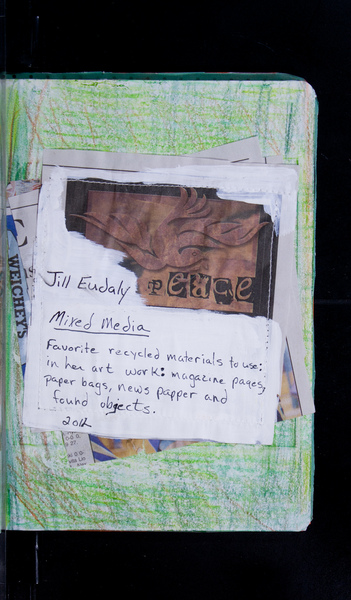 peace
Jill Eudaly
Mixed Media
Favorite recycled materials to use:
in her art work: magazine pages,
paper bags, news papper and
found objects.
2012
WEICHEY'S